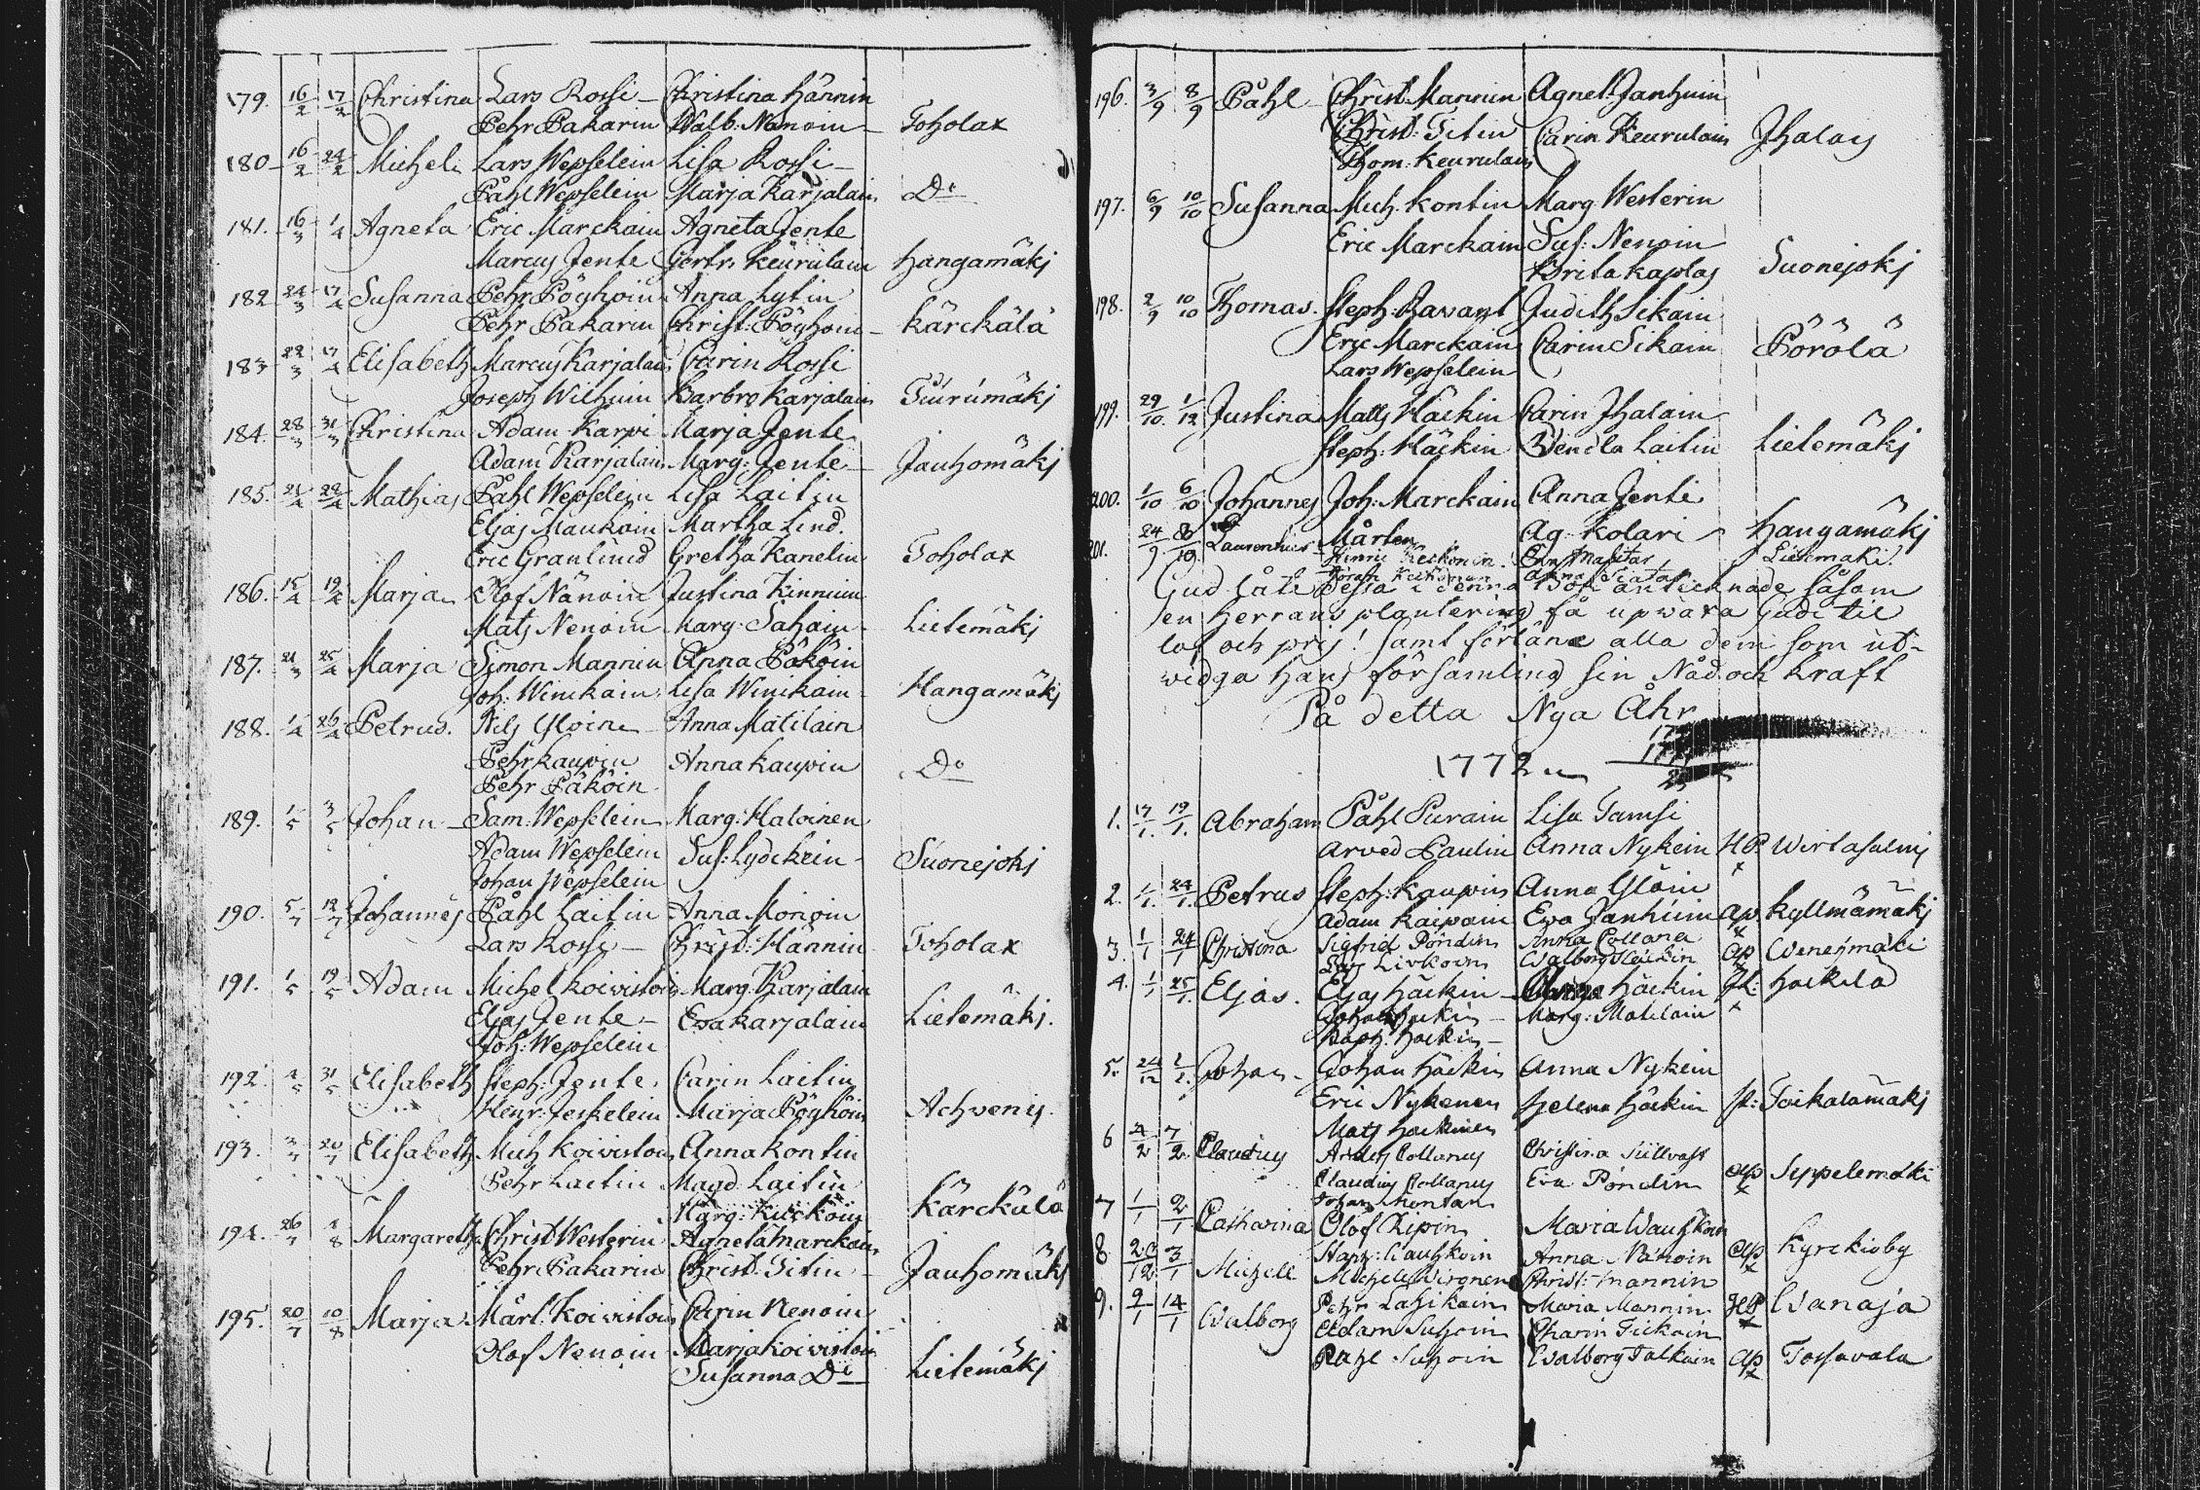 179. 16/2 17/2 Christina Lars Rossi - Christina Hännin
Pehr Pakarin Walb: Nenoin - Toholax
180 16/2 24/2 Michel Lars Wepselein Lisa Rossi -
Påhl Wepselein Marja Karjalain Do
181. 16/3 1/4 Agneta Eric Marckain Agneta Jente
Marcus Jente Gertr. Keurulain Hangamäkj
182 24/3 17/4 Susanna Pehr Pöyhöin Anna Lytin
Pehr Pakarin Christ: Pöyhöin - Kärckälä
183 22/3 17/4 Elisabeth Marcus Karjalain Carin Rossi
Joseph Wilhuin Barbro Karjalain Tiurumäkj
184. 28/3 31/3 Christina Adam Karpi Marja Jente
Adam Karjalain Marg: Jente - Jauhomäkj
185. 21/4 22/4 Mathias Påhl Wepselein Lisa Laitin
Eljas Maukoin Martha Lind.
Eric Granlund Gretha Kanelin Toholax
186. 15/4 19/4 Marja Olof Nänoin Justina Kinnuin
Mats Nenoin Marg: Sahain - Lietemäkj
187. 21/3 25/4 Marja Simon Mannin Anna Päköin
Joh: Winikain Lisa Winikain - Hangamäkj
188. 1/4 26/4 Petrus. Nils Yloine - Anna Matilain
Pehr Kaupin Anna Kaupin Do
Pehr Päköin
189. 1/5 3/5 Johan - Sam: Wepselein Marg: Haloinen
Adam Wepselein Sus: Lyöckein - Suonejokj
Johan Wepselein
190. 5/7 12/7 Johannes Påhl Laitin Anna Monoin
Lars Rossi - Christ: Hännin Toholax
191. 1/5 19/5 Adam Michel Koivistoin Marg: Karjalain
Eljas Jente - Eva Karjalain Lietemäkj.
Joh: Wepselein
192. 31/5 Elisabeth Steph: Jente. Carin Laitin
Henr: Jeskelein Marja Pöyhöin Achvenis.
193. 3/7 20/7 Elisabeth Mich Koivistoin Anna Kontin
Pehr Laitin Magd. Laitin
Marg: Kuckoin Kärckälä
194. 26/7 Margaretha Christ Westerin Agneta Marckain
Pehr Pakarin Christ: Titin - Jauhomäkj
195. 20/7 10/8 Marja Mårt. Koivistoin Carin Nenoin
Olof Nenoin Marja Koivistoin
Susanna Do Lietemäkj
196. 3/9 8/9 Påhl - Christ: Mannin Agnet: Janhuin
Christ: Titin Carin Keurulain Jhalais
Thom: Keurulain
197. 6/9 10/10 Susanna Mich. Kontin Marg Westerin
Eric Marckain Sus: Nenoin
Brita Kaplas Suonejokj
198. 2/9 10/10 Thomas. Steph: Judith Sikain
Eric Marckain Carin Sikain Pörölä
Lars Wepselein
199. 29/10. 1/12 Justina Matts Häckin Carin Jhalain
Steph: Häckin Wendla Laitin Lietemäkj
200. 1/10 6/10 Johannes Joh: Marckain Anna Jente
Hangamäkj
201. 24/9 Laurentius Mårten Ag. Kolari
Hinric Keckonin Lietemäki.
Gud låte dessa i denna Bok antecknade såsom
en Herrans plantering få upwaxa Gudi til
lof och pris! samt förläne alla dem som ut-
widga hans församling sin Nåd och kraft
På detta Nya Åhr
1772
1. 17/1. 19/1. Abraham Påhl Purain Lisa Tamsi
Arved Paulin Anna Nykein HP. Wirtasalmj
2. 1/1. 24/1. Petrus Steph: Kaupin Anna Ylöin
Adam Kaipain Eva Janhuin ap Kyllmämäkj
3. 1/1 24/1 Christina Sigfrid Pöndin Anna Collana
Lars Livkoin Walborg Häckin ap Wenejmäki
4. 1/1 25/1. Eljas. Eljas Häckin - Häckin Jt: Häckilä
Johan Häckin - Marg: Matilain
Staph. Häckin -
5. 24/12 1/1. Johan - Johan Häckin Anna Nykein
Eric Nykenen Helena Häckin Jt: Toikalamäkj
Mats Häckinen
6 4/2 7/2. Claudius Anders Collanus Christina Tullvast
Claudius Collanus Eva Pöndin ap Seppelemäki
Johan Montan
7 1/1 2/1 Catharina Olof Ripin Maria Wauhkoin
Kyrckioby
8 26/12 3/1 Michell Stapz: Wauhkoin Anna Närhoin ap
Michell Wironen Christ: Mannin
9. 9/1 14/1 Walborg Pehr Lahikain Maria Mannin HP Wanaja
Adam Suhoin Charin Tickain
Pahl Suhoin Walborg Talkain ap Tossavala